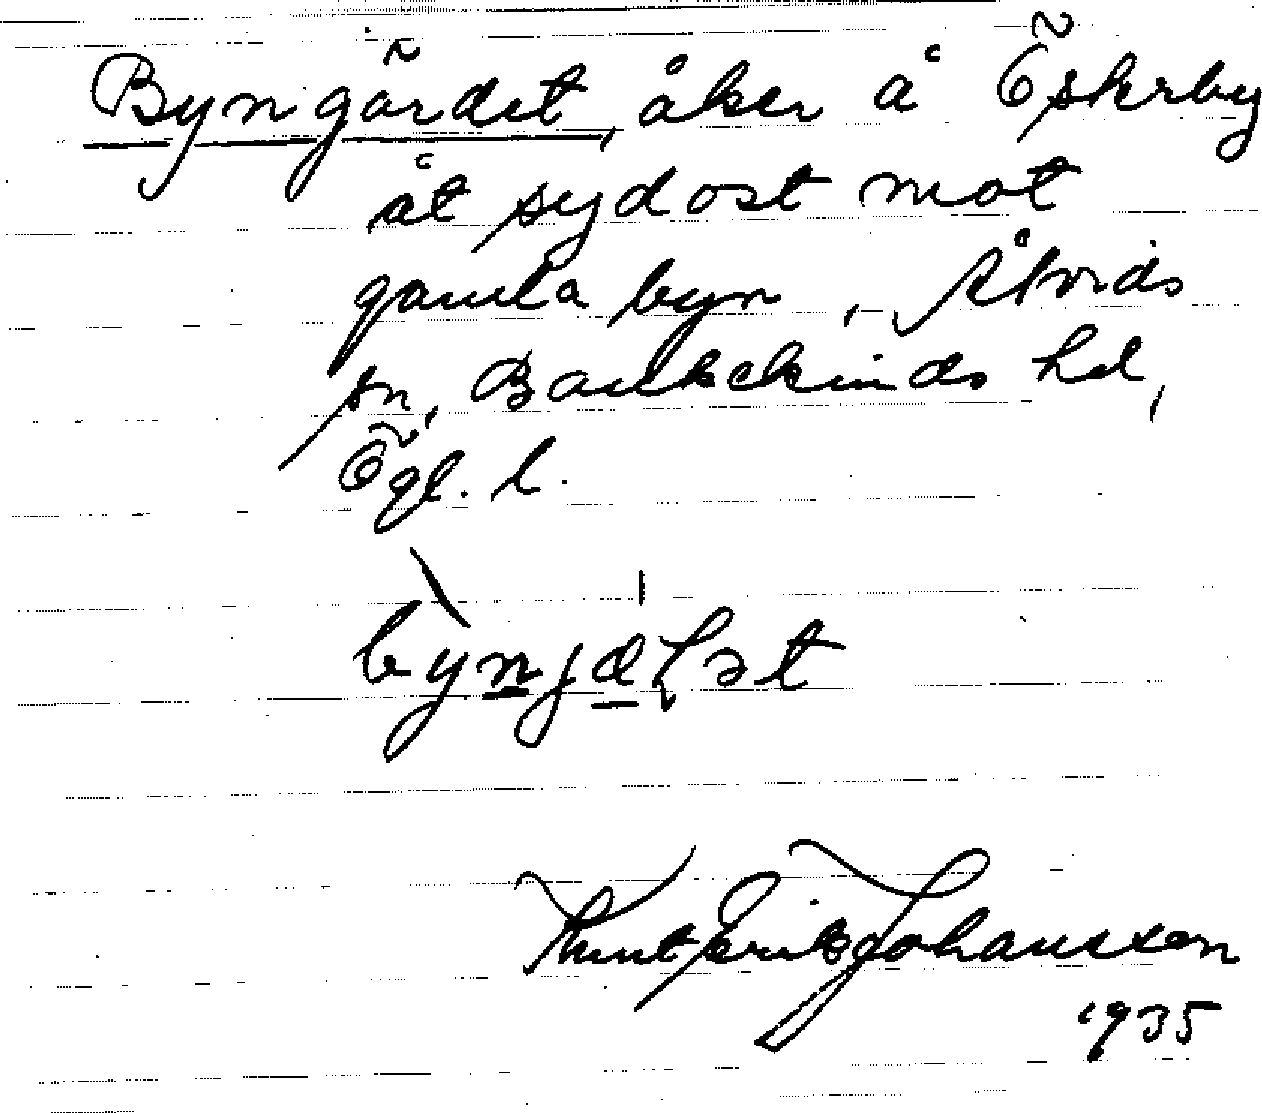 Byngärdet, åker å Öskrby
åt sydost mot
gamla byn, Åtvids
sn, Bankekinds hd,
Ögl. l.
Knut Erik Johansson
1935